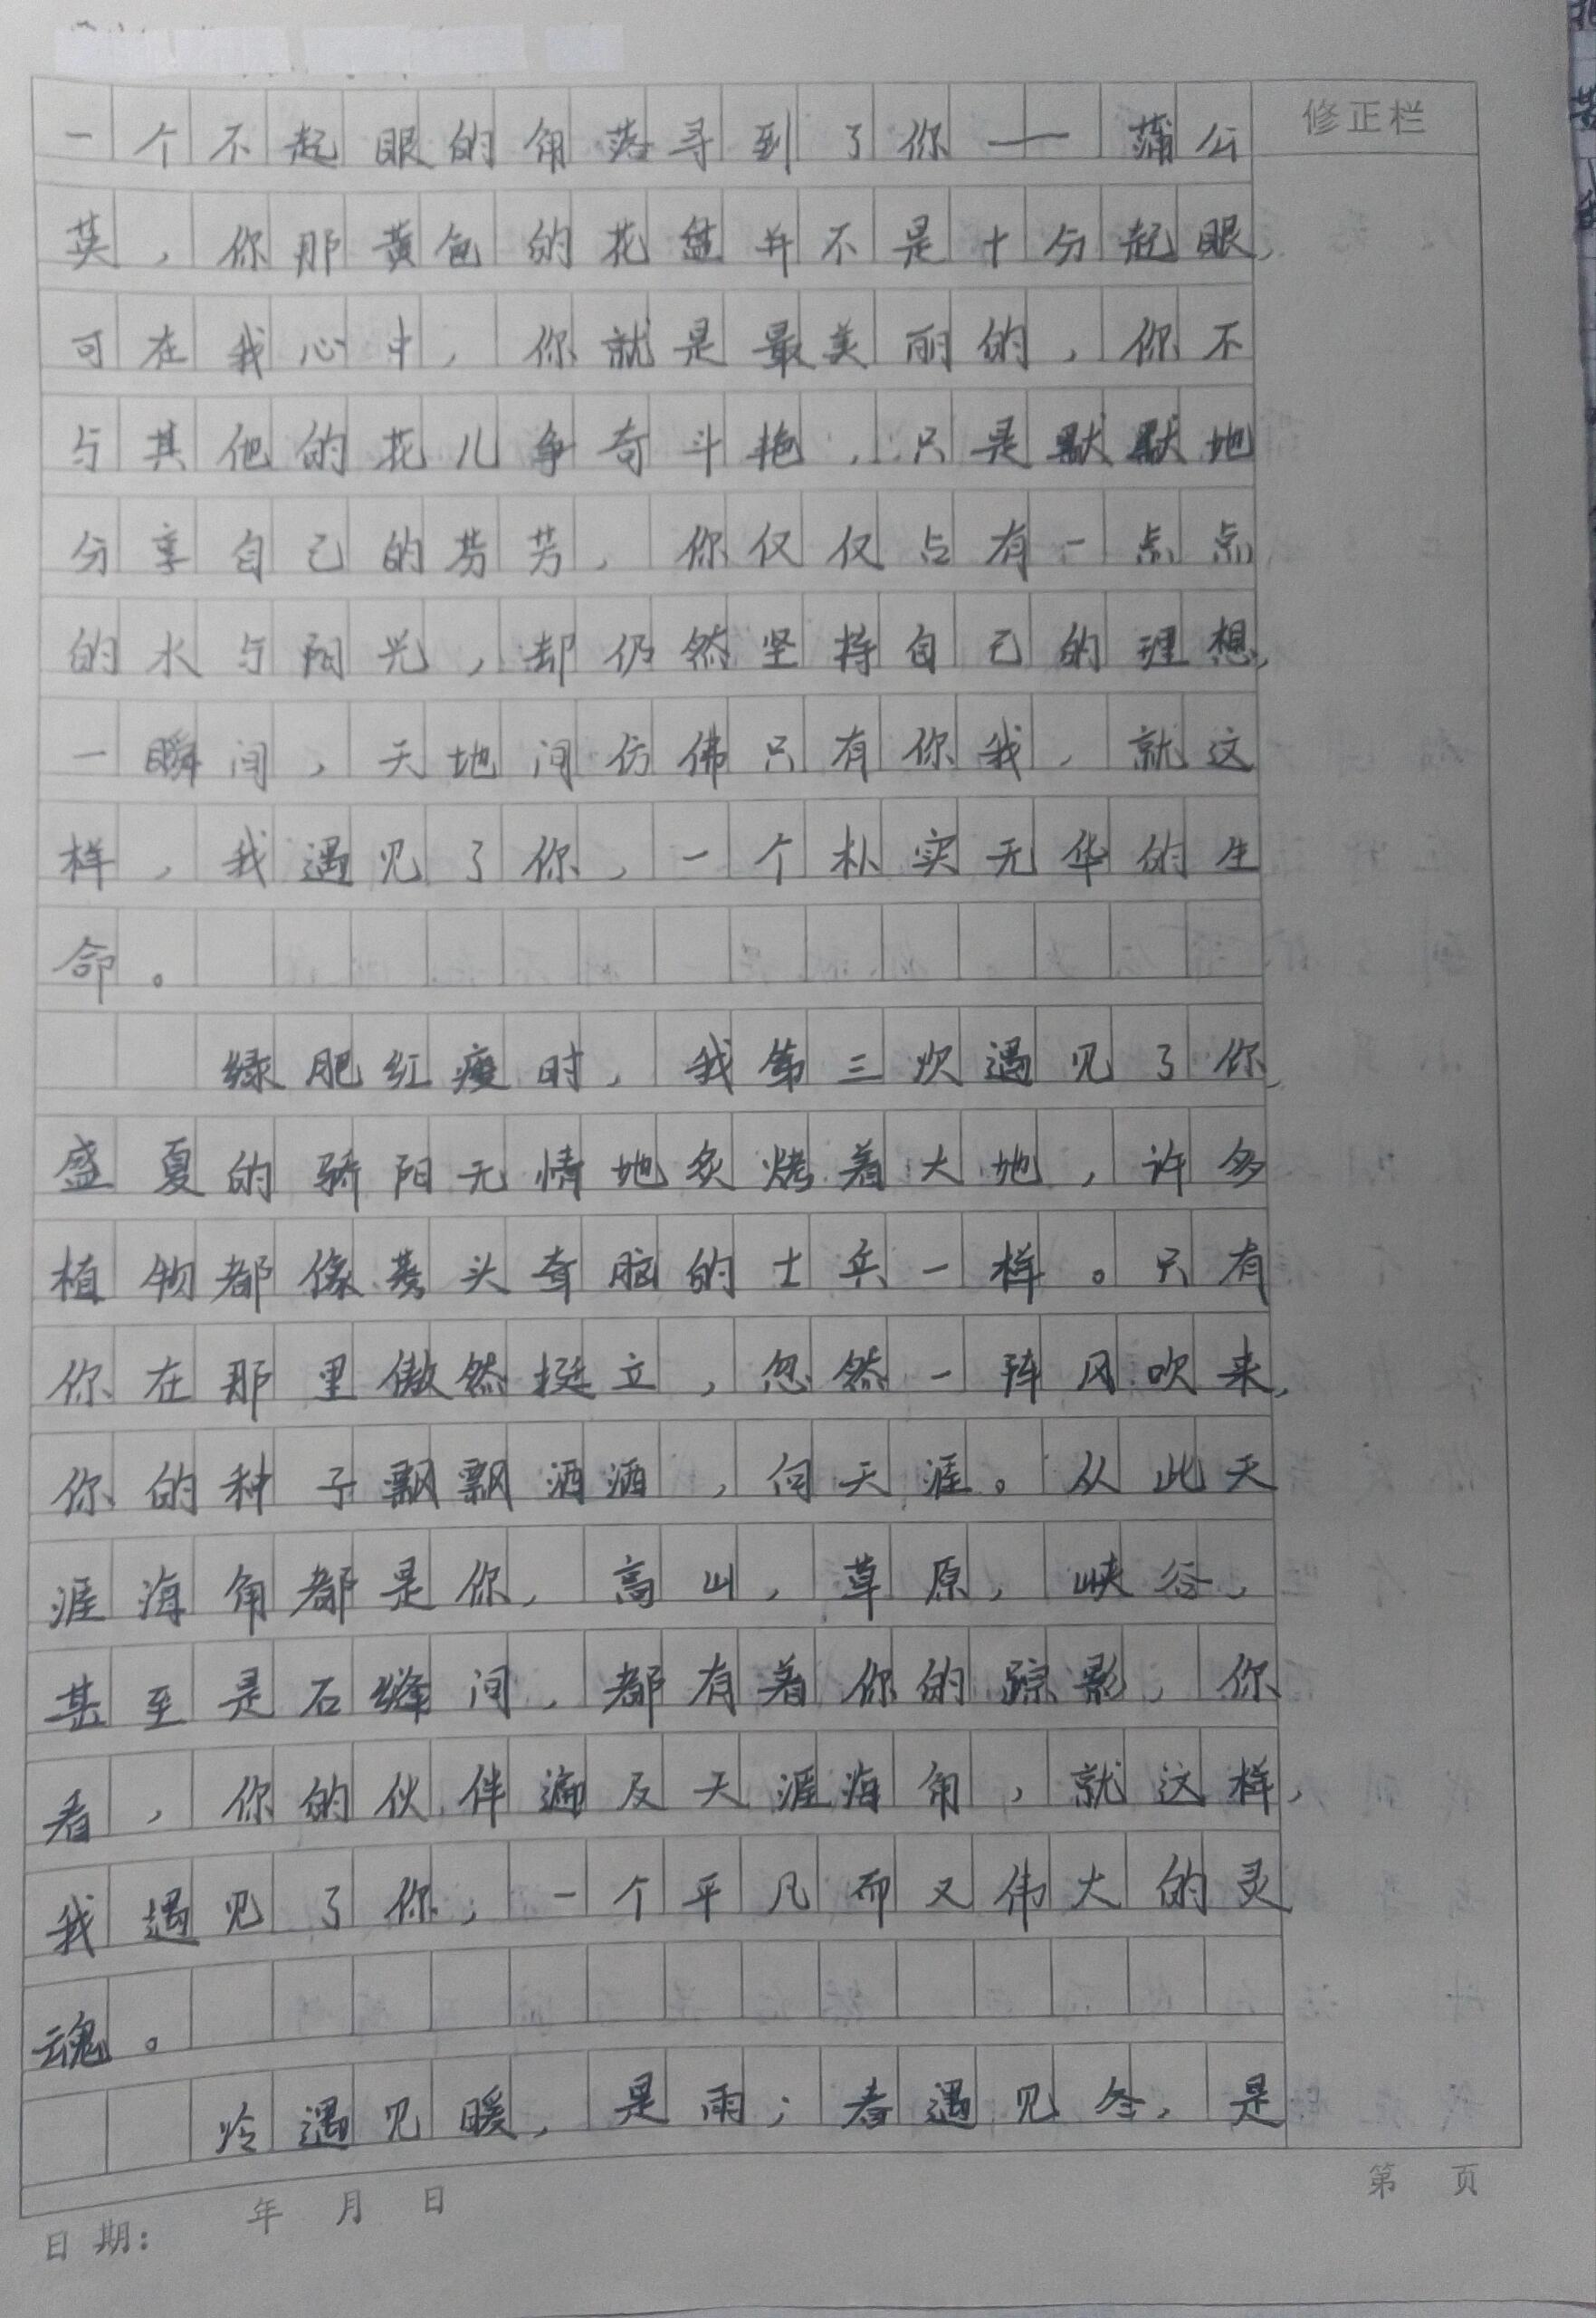 修正栏
一个不起眼的角落寻到了你——蒲公
英，你那黄色的花盘并不是十分起眼，
可在我心中，你就是最美丽的，你不
与其他的花儿争奇斗艳，只是默默地
分享自己的芬芳，你仅仅占有一点点
的水与阳光，却仍然坚持自己的理想，
一瞬间，天地间仿佛只有你我，就这
样，我遇见了你，一个朴实无华的生
命。
绿肥红瘦时，我第三次遇见了你，
盛夏的骄阳无情地炙烤着大地，许多
植物都像蒌头耷脑的士兵一样。只有
你在那里傲然挺立，忽然一阵风吹来，
你的种子飘飘洒洒，向天涯。从此天
涯海角都是你，高山，草原，峡谷，
甚至是石缝间，都有着你的踪影，你
看，你的伙伴遍及天涯海角，就这样，
我遇见了你，一个平凡而又伟大的灵
魂。
冷遇见暖，是雨；春遇见冬，是
日期： 年 月 日
第 页